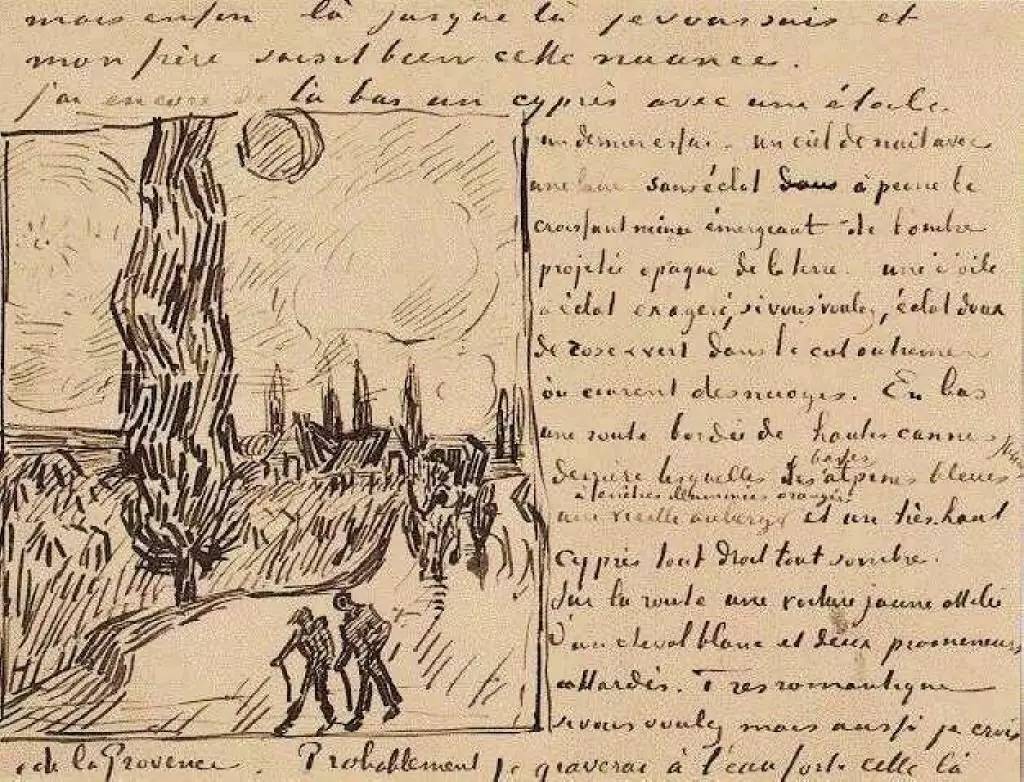 mais enfin là jusque là je vous sais et
mon frère saisit bien cette nuance.
j'ai encore de là bas un cyprès avec une étoile
un dernier essai - un ciel de nuit avec
une lune sans éclat à peine le
croissant mince émergeant de l'ombre
projetée opaque de la terre. une étoile
à éclat exagéré, si vous voulez, éclat doux
de rose & vert dans le ciel outremer
où courent des nuages. En bas
une route bordée de hautes cannes
derrière lesquelles les basses alpines bleues
une vieille auberge à fenêtres illuminées orangées et un très haut
cyprès tout droit tout sombre.
Sur la route une voiture jaune attelée
d'un cheval blanc et deux promeneurs
attardés. Très romantique
si vous voulez mais aussi je crois
de la Provence. Probablement je graverai à l'eau forte celle là